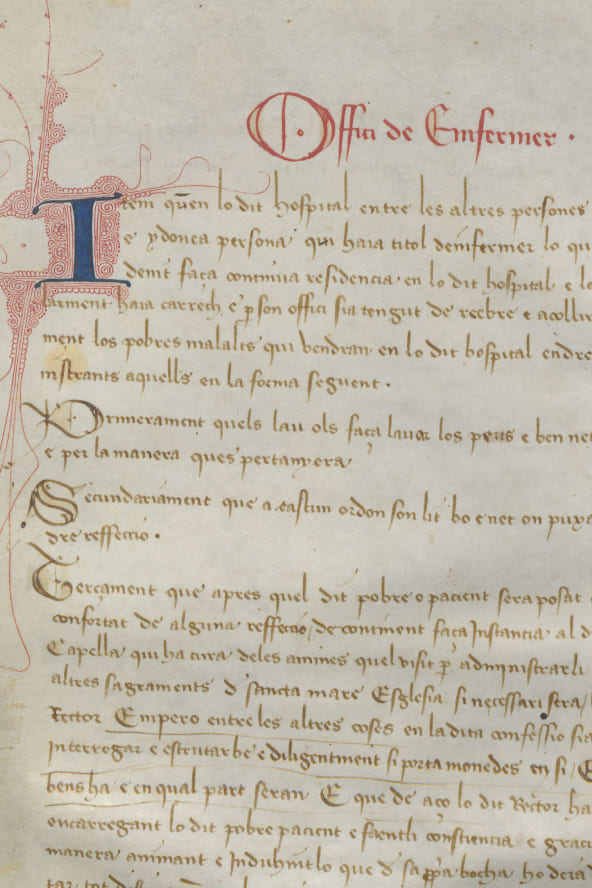 Offici de Enfermer .
Item quen lo dit hospital entre les altres persones
e ydonea persona qui haia titol denfermer lo qu
demt faça continua residencia en lo dit hospital e lo
larment haia carrech e p son offici sia tengut de reebre e acollir
ment los pobres malalts qui vendran en lo dit hospital endre
nistrants aquells en la forma seguent .
Primerament quels lau ols faça lavar los peus e ben net
e per la manera ques pertanyera
Secundariament que a cascun ordon son lit bo e net on puxa
dre reffeccio .
Terçament que apres quel dit pobre o pacient sera posat
confortat de alguna reffeccio / de continent faça Instancia al d
Capella qui ha cura deles animes quel visit p administrarli
altres sagraments d sancta mare Esglesia si necessari sera /
Rector Empero entre les altres coses en la dita confessio sia
Interrogar e escrutar be e diligentment si porta monedes en si / E
bens ha e en qual part seran E que de aço lo dit Rector ha
encarregant lo dit pobre pacient e faentli consciencia e graci
manera animant e Induhintlo que d sa ppa bocha ho deia d
tar tot